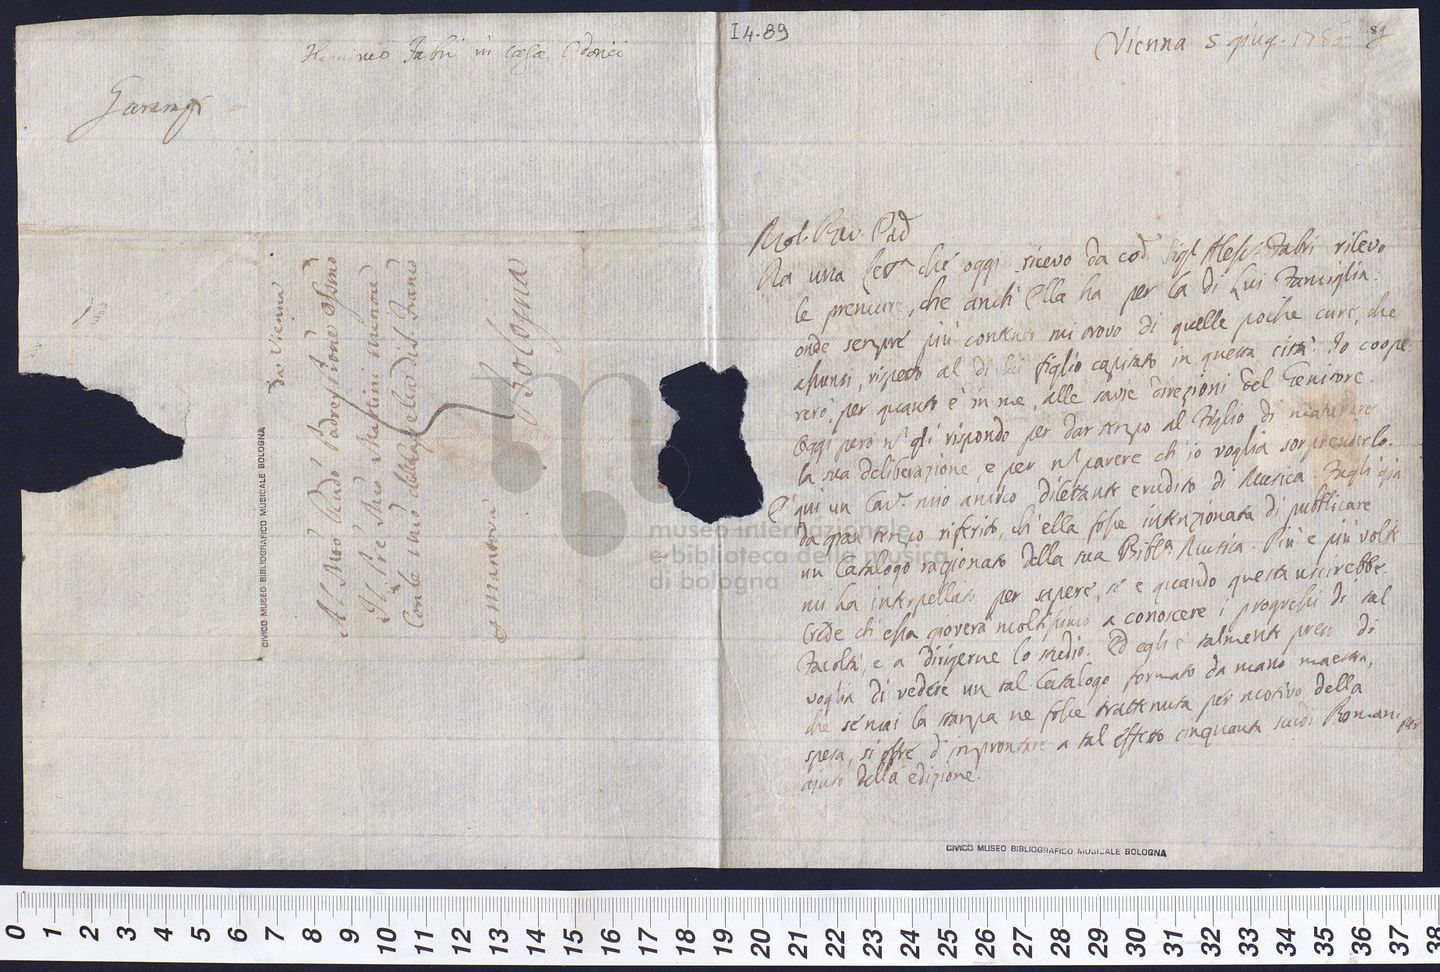 I4.89
Fabri in Casa
Garampi
Vienna 5 giug. 1780
Mol. Rev. Pad
Da una lett.a che oggi ricevo da cod Sigr Aless. Fabri rilevo
le premure, che anch' Ella ha per la di Lui Famiglia:
onde sempre più contento mi trovo di quelle poche cure, che
assunsi, rispetto al di lui figlio capitato in questa città. Io coope-
rerò, per quanto è in me, alle savie direzioni del Genitore.
Oggi però nō gli rispondo per dar tempo al Figlio di maturare
la sua deliberazione, e per nō parere ch' io voglia sorprenderlo.
È qui un Cav.r mio amico dilettante erudito di Musica. Fugli già
da gran tempo riferito, ch' ella fosse intenzionata di pubblicare
un Catalogo ragionato della sua Bibl.a Musica. Più e più volte
mi ha interpellato per sapere, se e quando questa uscirebbe.
Crede ch' essa gioverà moltissimo a conoscere i progressi di tal
Facoltà, e a dirigerne lo studio. Ed egli è talmente preso di
voglia di vedere un tal Catalogo formato da mano maestra,
che se mai la stampa ne fosse trattenuta per motivo della
spesa, si offre d' improntare a tal effetto cinquanta scudi Romani per
ajuto della edizione.
da Vienna
Al Rmo Padre
Il Pre Mro Martini minore
Conle
Bologna
Mantova
museo internazionale
e biblioteca della musica
di bologna
CIVICO MUSEO BIBLIOGRAFICO MUSICALE BOLOGNA
CIVICO MUSEO BIBLIOGRAFICO MUSICALE BOLOGNA
0 1 2 3 4 5 6 7 8 9 10 11 12 13 14 15 16 17 18 19 20 21 22 23 24 25 26 27 28 29 30 31 32 33 34 35 36 37 38